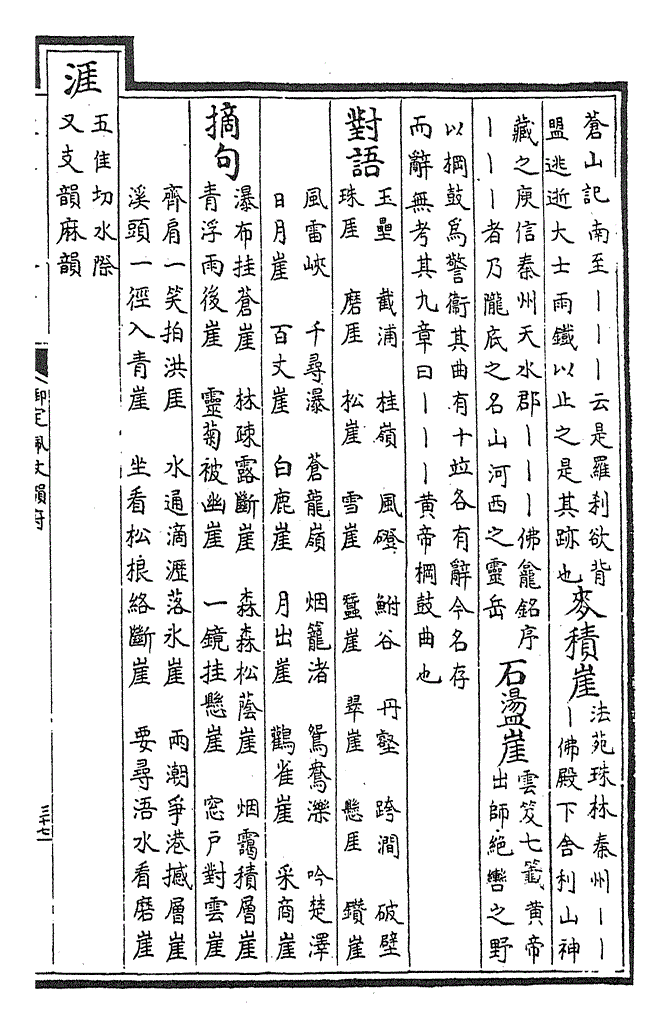 蒼山記南至丨丨丨云是羅刹欲背
盟逃逝大士雨鐵以止之是其跡也
麥積崖
法苑珠林秦州丨丨
丨佛殿下舍利山神
藏之庾信秦州天水郡丨丨丨佛龕銘序
丨丨丨者乃隴底之名山河西之靈岳
石盪崖
雲笈七籤黃帝
出師絶轡之野
以棡鼓爲警衞其曲有十竝各有辭今名存
而辭無考其九章曰丨丨丨黄帝棡鼓曲也
對語
玉壘 截浦 桂嶺 風磴 鮒谷 丹壑 跨澗 破壁
珠厓 磨厓 松崖 雪崖 蠶崖 翠崖 懸厓 鑽崖
風雷峽 千尋瀑 蒼龍嶺 烟籠渚 鴛鴦濼 吟楚澤
日月崖 百丈崖 白鹿崖 月出崖 鸛雀崖 采商崖
摘句
瀑布挂蒼崖 林疎露斷崖 森森松蔭崖 烟靄積層崖
青浮雨後崖 靈菊被幽崖 一鏡挂懸崖 窓户對雲崖
齊肩一笑拍洪厓 水通滴瀝落氷崖 兩潮爭港撼層崖
溪頭一徑入青崖 坐看松根絡斷崖 要尋浯水看磨崖
涯
五佳切水際
又支韻麻韻
御定佩文韻府
三十七